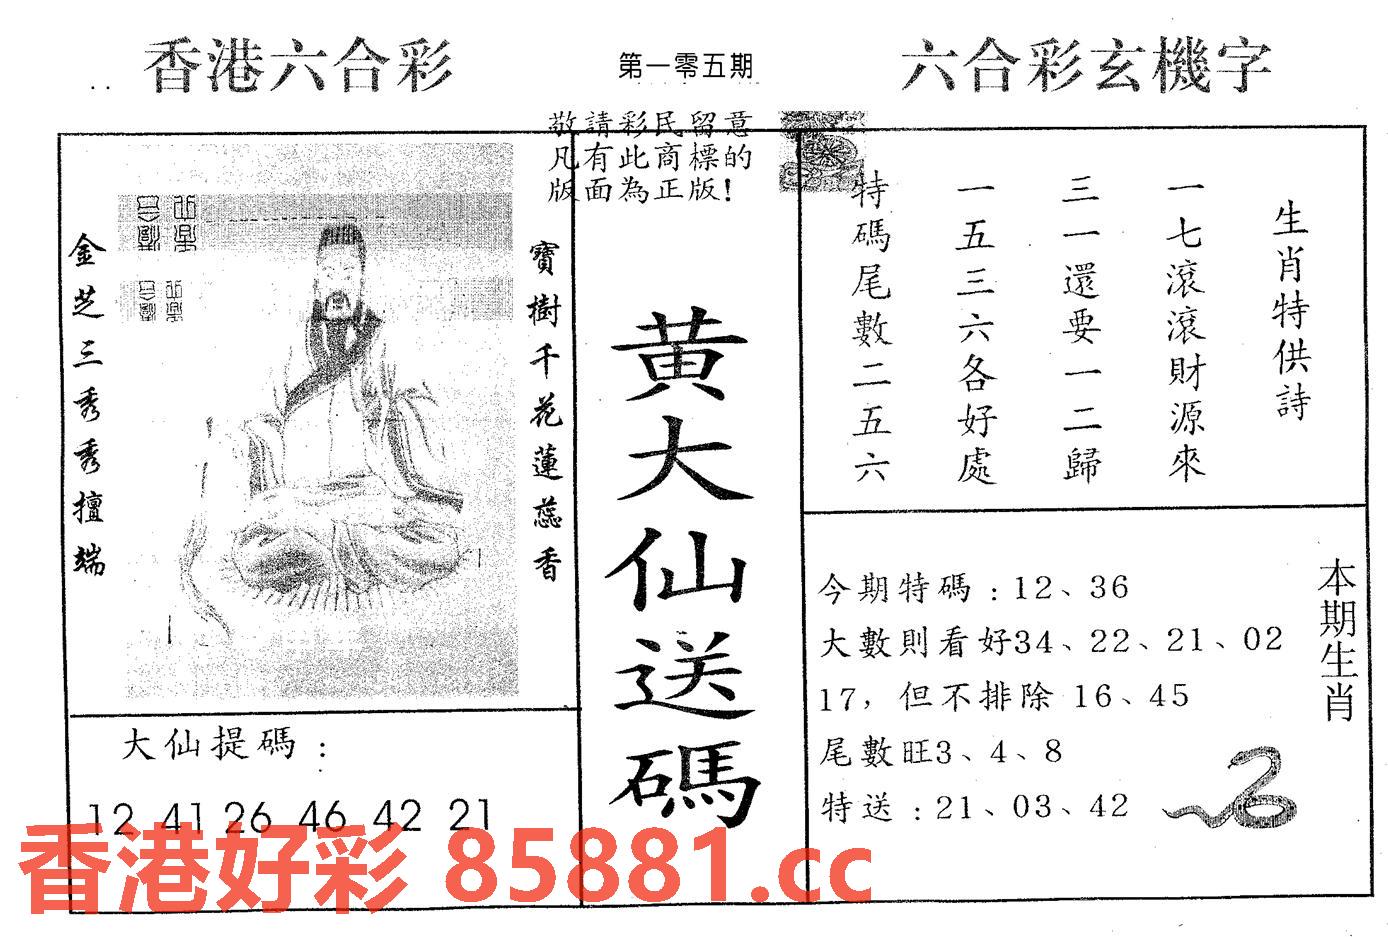 香港六合彩
第一零五期
六合彩玄機字
敬請彩民留意
凡有此商標的
版面為正版!
寶樹千花蓮蕊香
金芝三秀秀擅端
黄大仙送碼
大仙提碼:
12 41 26 46 42 21
生肖特供詩
一七滾滾財源來
三一還要一二歸
一五三六各好處
特碼尾數二五六
本期生肖
今期特碼:12、36
大數則看好34、22、21、02
17,但不排除 16、45
尾數旺3、4、8
特送:21、03、42
香港好彩 85881.cc